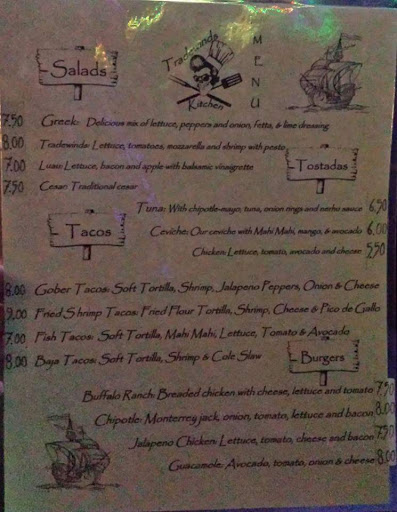 Salads
Tradewinds
Kitchen
MENU
7.50 Greek: Delicious mix of lettuce, peppers and onion, fetta, & lime dressing
8.00 Tradewinds: Lettuce, tomatoes, mozzarella and shrimp with pesto
7.00 Luau: Lettuce, bacon and apple with balsamic vinaigrette
7.50 Cesar: Traditional cesar
Tostadas
Tuna: With chipotle-mayo, tuna, onion rings and nerhu sauce 6.50
Ceviche: Our ceviche with Mahi Mahi, mango, & avocado 6.00
Chicken: Lettuce, tomato, avocado and cheese 5.50
Tacos
8.00 Gober Tacos: Soft Tortilla, Shrimp, Jalapeno Peppers, Onion & Cheese
9.00 Fried Shrimp Tacos: Fried Flour Tortilla, Shrimp, Cheese & Pico de Gallo
7.00 Fish Tacos: Soft Tortilla, Mahi Mahi, Lettuce, Tomato & Avocado
8.00 Baja Tacos: Soft Tortilla, Shrimp & Cole Slaw
Burgers
Buffalo Ranch: Breaded chicken with cheese, lettuce and tomato 7.50
Chipotle: Monterrey jack, onion, tomato, lettuce and bacon 8.00
Jalapeno Chicken: Lettuce, tomato, cheese and bacon 7.50
Guacamole: Avocado, tomato, onion & cheese 8.00